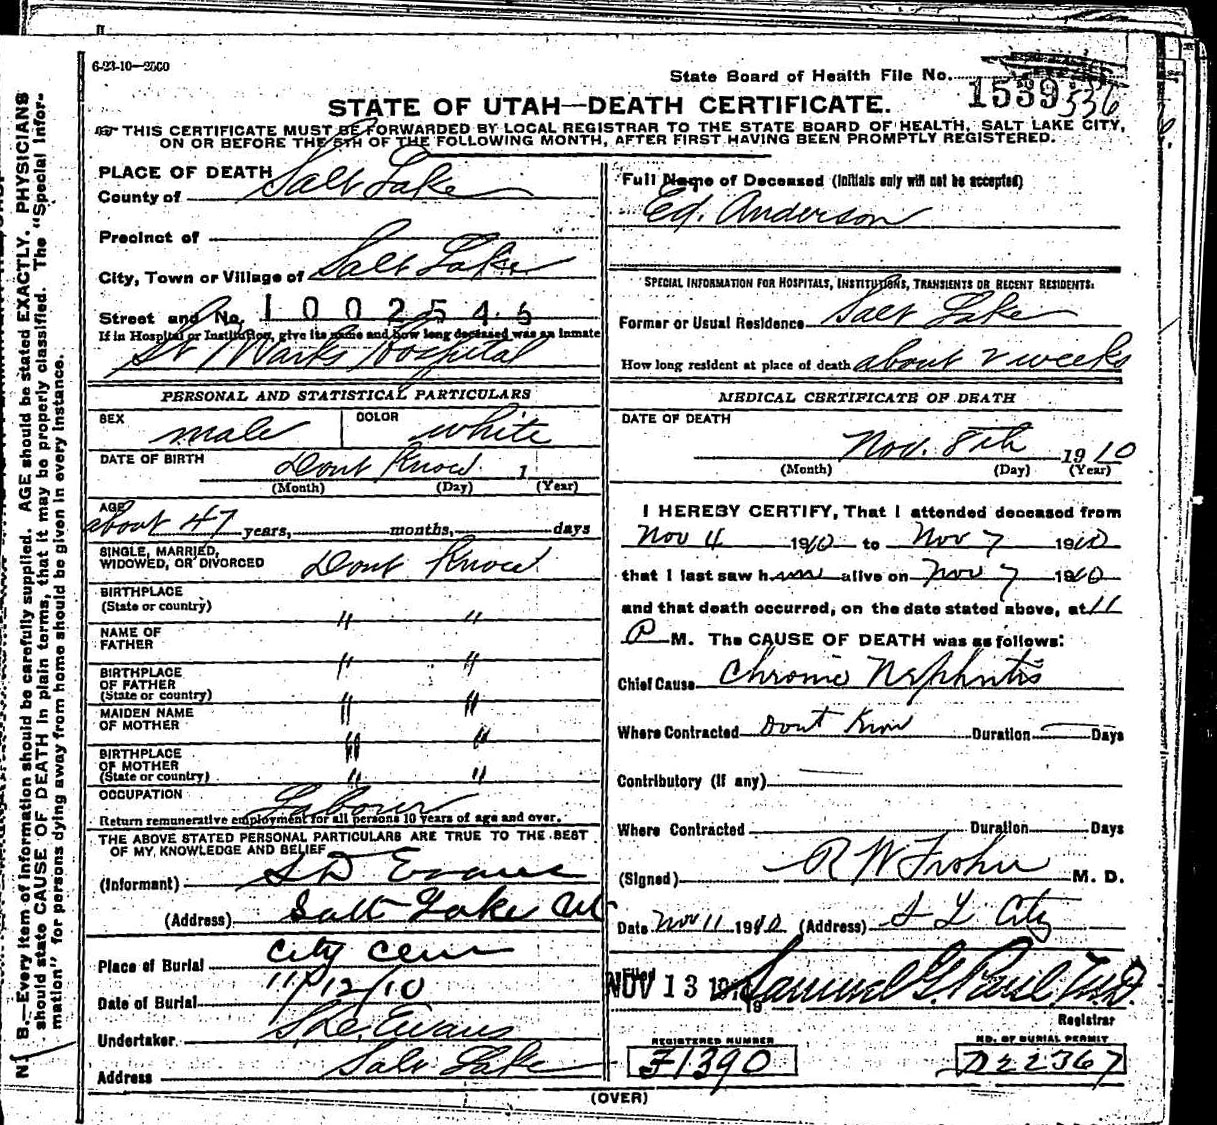 6-23-10—2500
State Board of Health File No.
1539 336
STATE OF UTAH—DEATH CERTIFICATE.
THIS CERTIFICATE MUST BE FORWARDED BY LOCAL REGISTRAR TO THE STATE BOARD OF HEALTH, SALT LAKE CITY,
ON OR BEFORE THE 5TH OF THE FOLLOWING MONTH, AFTER FIRST HAVING BEEN PROMPTLY REGISTERED.
PLACE OF DEATH
County of Salt Lake
Precinct of
City, Town or Village of Salt Lake
Street and No. 1002546
If in Hospital or Institution, give its name and how long deceased was an inmate
St Marks Hospital
PERSONAL AND STATISTICAL PARTICULARS
SEX male COLOR white
DATE OF BIRTH Dont Know 1
(Month) (Day) (Year)
AGE
about 47 years, months, days
SINGLE, MARRIED,
WIDOWED, OR DIVORCED Dont Know
BIRTHPLACE
(State or country) " "
NAME OF
FATHER " "
BIRTHPLACE
OF FATHER
(State or country) " "
MAIDEN NAME
OF MOTHER " "
BIRTHPLACE
OF MOTHER
(State or country) " "
OCCUPATION Labourer
Return remunerative employment for all persons 10 years of age and over.
THE ABOVE STATED PERSONAL PARTICULARS ARE TRUE TO THE BEST
OF MY KNOWLEDGE AND BELIEF
(Informant) S D Evans
(Address) Salt Lake Ut
Place of Burial City Cem
Date of Burial 11/12/10
Undertaker S. D. Evans
Address Salt Lake
Full Name of Deceased (Initials only will not be accepted)
Ed. Anderson
SPECIAL INFORMATION FOR HOSPITALS, INSTITUTIONS, TRANSIENTS OR RECENT RESIDENTS:
Former or Usual Residence Salt Lake
How long resident at place of death about 2 weeks
MEDICAL CERTIFICATE OF DEATH
DATE OF DEATH
Nov. 8th 1910
(Month) (Day) (Year)
I HEREBY CERTIFY, That I attended deceased from
Nov 4 1910 to Nov 7 1910
that I last saw him alive on Nov 7 1910
and that death occurred, on the date stated above, at 11
P M. The CAUSE OF DEATH was as follows:
Chief Cause Chronic Nephritis
Where Contracted Dont Know Duration — Days
Contributory (If any) —
Where Contracted Duration Days
(Signed) R W M. D.
Date Nov 11 1910 (Address) S L City
Filed
NOV 13 1910 Samuel G. Paul M D
19
Registrar
REGISTERED NUMBER
F1390
NO. OF BURIAL PERMIT
D22367
(OVER)
N. B.—Every item of information should be carefully supplied. AGE should be stated EXACTLY. PHYSICIANS
should state CAUSE OF DEATH in plain terms, that it may be properly classified. The "Special Infor-
mation" for persons dying away from home should be given in every instance.